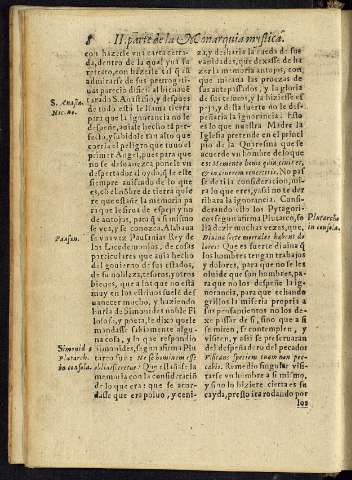 8 II. parte de la Monarquia mystica
con hazerse vna carta cerra-
da, dentro de la qual yua su
retrato, con hazerle tal que
admirarse de sus prerrogati-
uas parecio dificil al bienauē
tarado S. Anastasio, y despues
de todo esta le llama tierra
para que la ignorancia no le
despeñe, auiale hecho tā per-
fecto, y subidole tan alto que
corrio el peligro que tuuo el
primer Angel, pues para que
no se desuanezca pone le vn
despertador al oydo, que le este
siempre auisando de lo que
es, echè hōbre de tierra quie
re que estañe la memoria pa
ra que le sirua de espejo y no
de antojos, para si mismo no
se conoce a vezes. Alabaua
se vna vez Pausanias Rey de
los Lacedemonios, de cosas
particulares que auia hecho
del gouierno de sus estados,
de su nobleza, tesoros, y otros
bienes, que a los que no estan
muy en los estriuos suele des
uanecer mucho, y haziendo
burla de Simonides noble Fi
losofo, y poeta, le dixo que le
mandasse sabiamente algu-
na cosa, y la que respondio
Simonides, segun afirma Plu
tarco fue: Ne se hominem esse
obliuisceretur: Que estañase la
memoria con la consideraciō
de lo que era: que se acor-
dasse que era poluo, y ceni-
S. Anasta.
Nicæno.
Pausan.
Simonid.
Plutarch.
in consola.
za, y desharia la rueda de sus
vanidades, que dexasse de ha
zer la memoria antojos, con
que miraua las grandezas de
sus antepassados, y la gloria
de sus tesoros, y la hiziesse es
pejo, y desta suerte no le des-
peñaria la ignorancia: Esto
es lo que nuestra Madre la
Iglesia pretende en el princi
pio de la Quaresma que se
acuerde vn hombre de lo que
es: Memento homo quia cinis es,
& in cinerem reuerteris. No pas
se de ti la consideracion, mi-
ra lo que eres, y assi no te der
ribara la ignorancia. Consi-
derando esto los Pytagori-
cos segun afirma Plutarco, so
liā dezir muchas vezes, que,
Diuina sorte mortales habent do
lores: Que es suerte diuina q̄
los hombres tengan trabajos
y dolores, para que no se les
oluide que son hombres, pa-
ra que no los despeñe la ign-
norancia, para que echando
grillos la miseria propria a
sus pensamientos no los de-
xe passar de si, sino que a si
se miren, se contemplen, y
visiten, y assi se preseruaran
del despeñadero del pecador
Visitans speciem tuam non pec-
cabis. Remedio singular visi-
tarse vn hombre a si mismo,
y sino lo hiziere cierta es su
cayda, presto ira rodando por
los
Plutarcho
in consola.